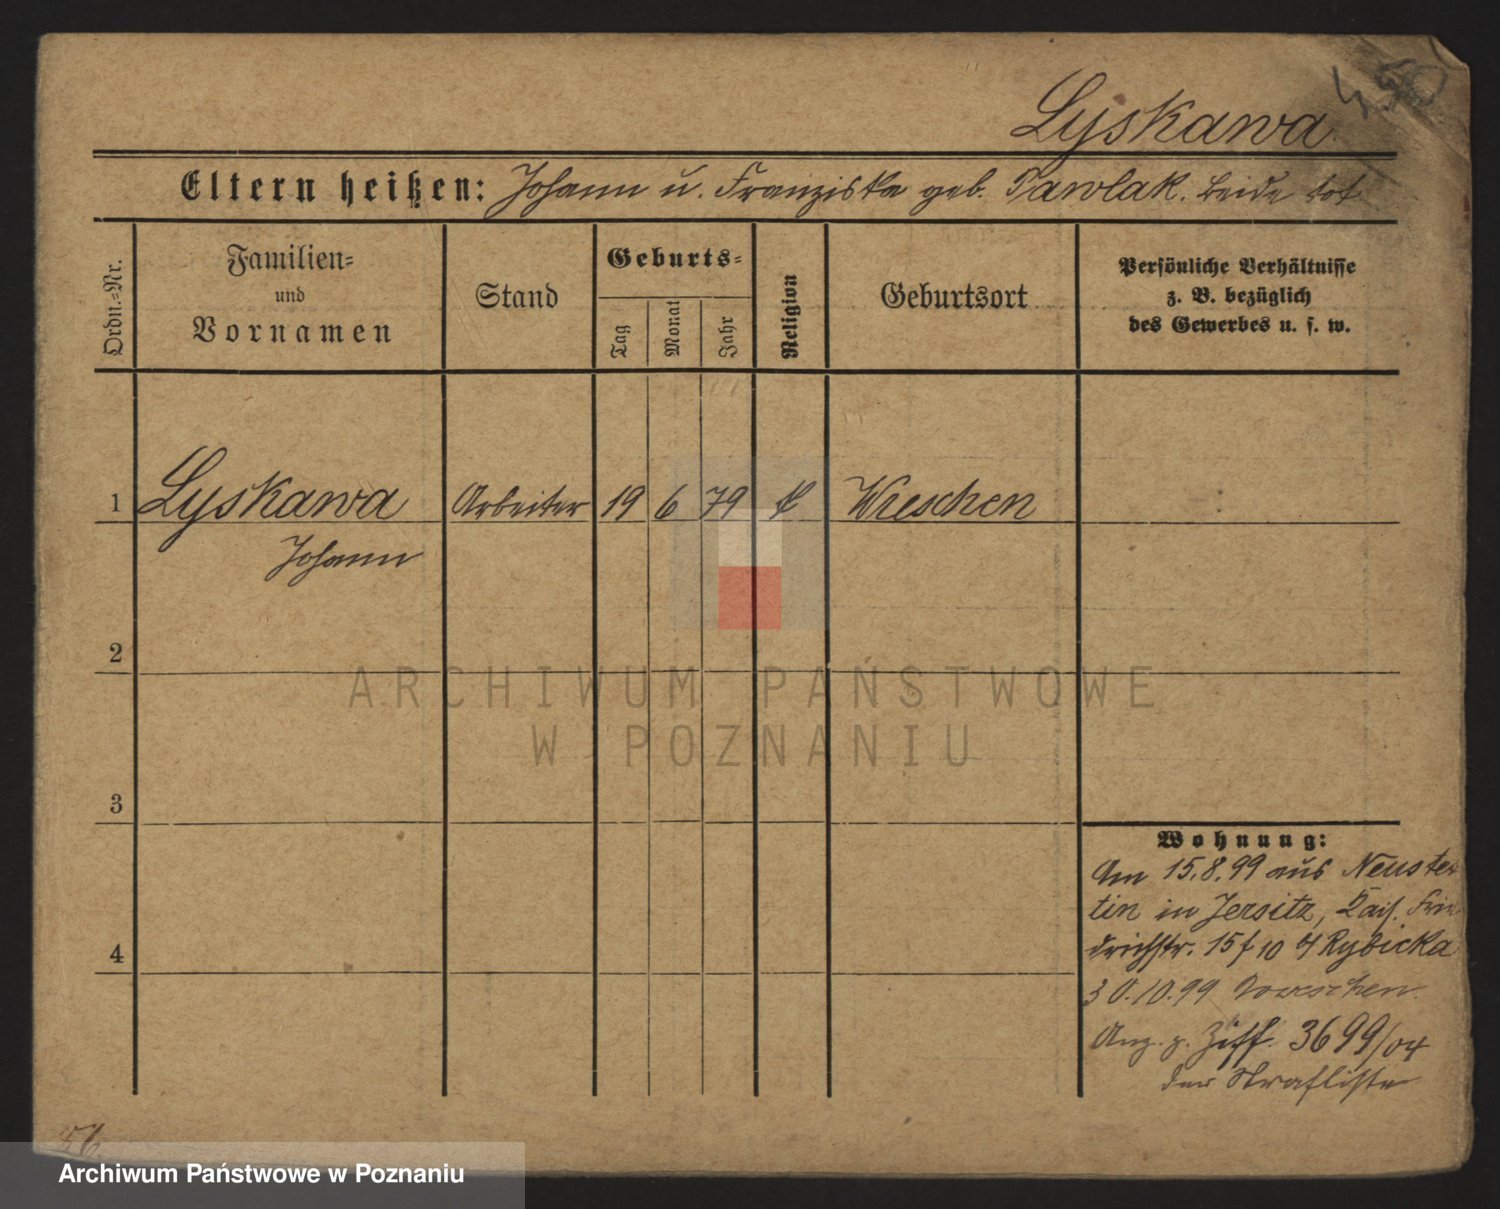 Lyskawa.
Eltern heißen: Johann u. Franziska geb. Pawlak. beide tot
Ordn.-Nr.
Familien-
und
Vornamen
Stand
Geburts-
Tag
Monat
Jahr
Religion
Geburtsort
Persönliche Verhältnisse
z. B. bezüglich
des Gewerbes u. s. w.
1 Lyskawa Arbeiter 19 6 79 k Wreschen
Johann
2
3
4
Wohnung:
Am 15.8.99 aus Neustet-
tin in Jersitz, Kais. Frie-
drichstr. 15 f 10 b/ Rybicka
30.10.99 Wreschen.
Anz. z. Ziff. 3699/04
der Strafliste
ARCHIWUM PAŃSTWOWE
W POZNANIU
Archiwum Państwowe w Poznaniu